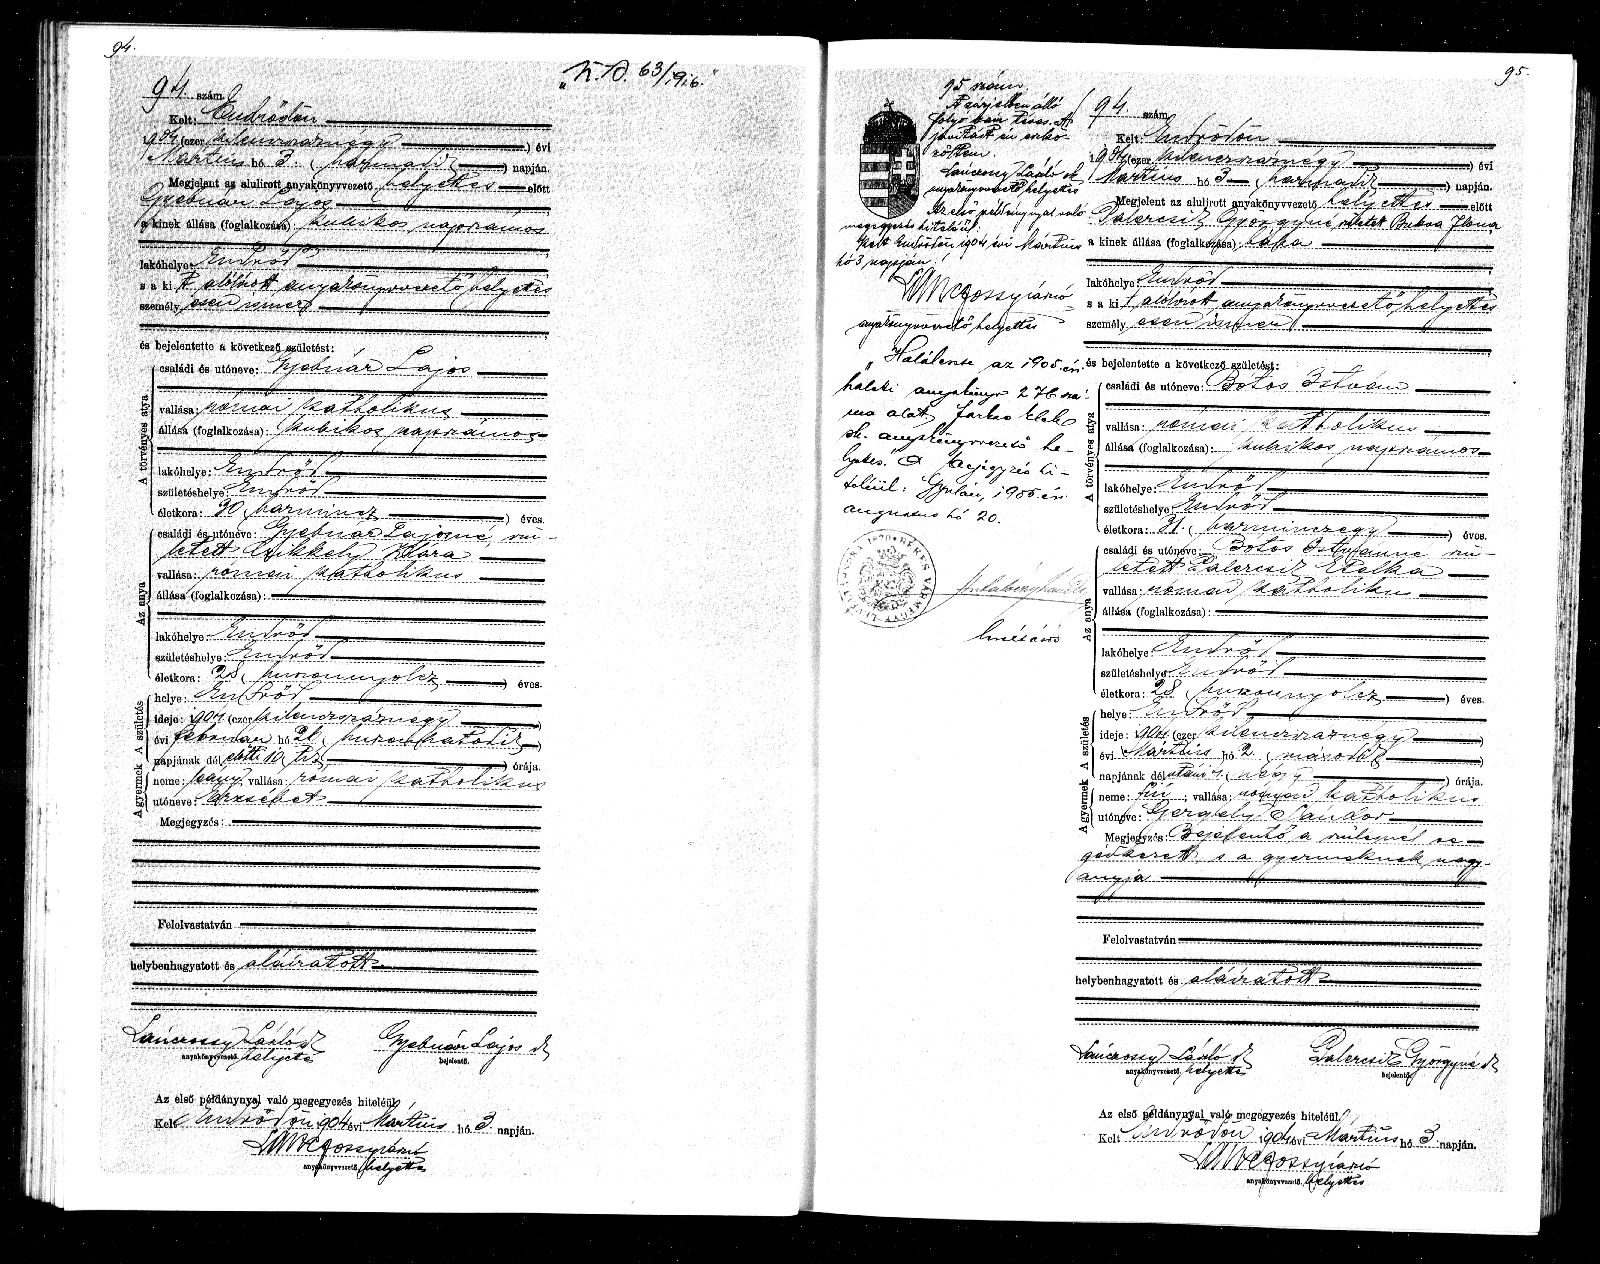 94.
"K.A. 63/1916."
94. szám
Kelt: Endrődön
1904 (ezer kilenczszáznégy) évi
Mártius hó 3. (harmadik) napján.
Megjelent az alulirott anyakönyvvezető helyettes előtt
Gyebnár Lajos
a kinek állása (foglalkozása): kubikos napszámos
lakóhelye: Endrőd
s a ki t alólirott anyakönyvvezető helyettes
személyesen ismer
és bejelentette a következő születést:
A törvényes atya
családi és utóneve: Gyebnár Lajos
vallása: római katholikus
állása (foglalkozása): kubikos napszámos
lakóhelye: Endrőd
születéshelye: Endrőd
életkora: 30 (harmincz) éves.
Az anya
családi és utóneve: Gyebnár Lajosné, szü-
letett Czikkely Klára
vallása: római katholikus
állása (foglalkozása):
lakóhelye: Endrőd
születéshelye: Endrőd
életkora: 28 (huszonnyolcz) éves.
A gyermek A születés
helye: Endrőd
ideje: 1904 (ezer kilenczszáznégy)
évi február hó
napjának dél előtti 10 (tíz) órája.
neme: leány vallása: római katholikus
utóneve: Erzsébet
Megjegyzés:
Felolvastatván
helybenhagyatott és aláiratott
Lánczossy László sk
anyakönyvvezető. helyettes
Gyebnár Lajos sk
bejelentő.
Az első példánynyal való megegyezés hiteléül
Kelt Endrődön 1904 évi Mártius hó 3 napján.
anyakönyvvezető. helyettes
95.
95 szám.
Lánczossy László sk
anyakönyvvezető helyettes
Az első példánynyal való
megegyezés hiteléül.
Kelt Endrődön 1904 évi Mártius
hó 3 napján!
anyakönyvvezető, helyettes
"Halálesete az 1905. évi
halotti anyakönyv 276 szá-
ma alatt. Farkas Elek
sk. anyakönyvvezető he-
lyettes. A bejegyzés hi-
teléül: Gyulán, 1905 évi
augusztus hó 20.
94 szám
Kelt: Endrődön
1904 (ezer kilenczszáznégy) évi
Mártius hó 3 (harmadik) napján.
Megjelent az alulirott anyakönyvvezető helyettes előtt
Palercsik Györgyné született Bukva Ilona
a kinek állása (foglalkozása): bába
lakóhelye: Endrőd
s a ki t alólirott anyakönyvvezető helyettes
személyesen ismer
és bejelentette a következő születést:
A törvényes atya
családi és utóneve: Bótos István
vallása: római katholikus
állása (foglalkozása): kubikos napszámos
lakóhelye: Endrőd
születéshelye: Endrőd
életkora: 31 (harminczegy) éves.
Az anya
családi és utóneve: Bótos Istvánné szü-
letett Palercsik Etelka
vallása: római katholikus
állása (foglalkozása):
lakóhelye: Endrőd
születéshelye: Endrőd
életkora: 28 (huszonnyolcz) éves.
A gyermek A születés
helye: Endrőd
ideje: 1904 (ezer kilenczszáznégy)
évi Mártius hó 2 (második)
napjának dél utáni 4 (négy) órája.
neme: fiú; vallása: római katholikus
utóneve: Gergely Sándor
Megjegyzés: Bejelentő a szülésnél se-
gédkezett s a gyermeknek nagy-
anyja
Felolvastatván
helybenhagyatott és aláiratott
Lánczossy László sk
anyakönyvvezető. helyettes
Palercsik Györgyné sk
bejelentő.
Az első példánynyal való megegyezés hiteléül
Kelt Endrődön 1904 évi Mártius hó 3 napján.
anyakönyvvezető. helyettes